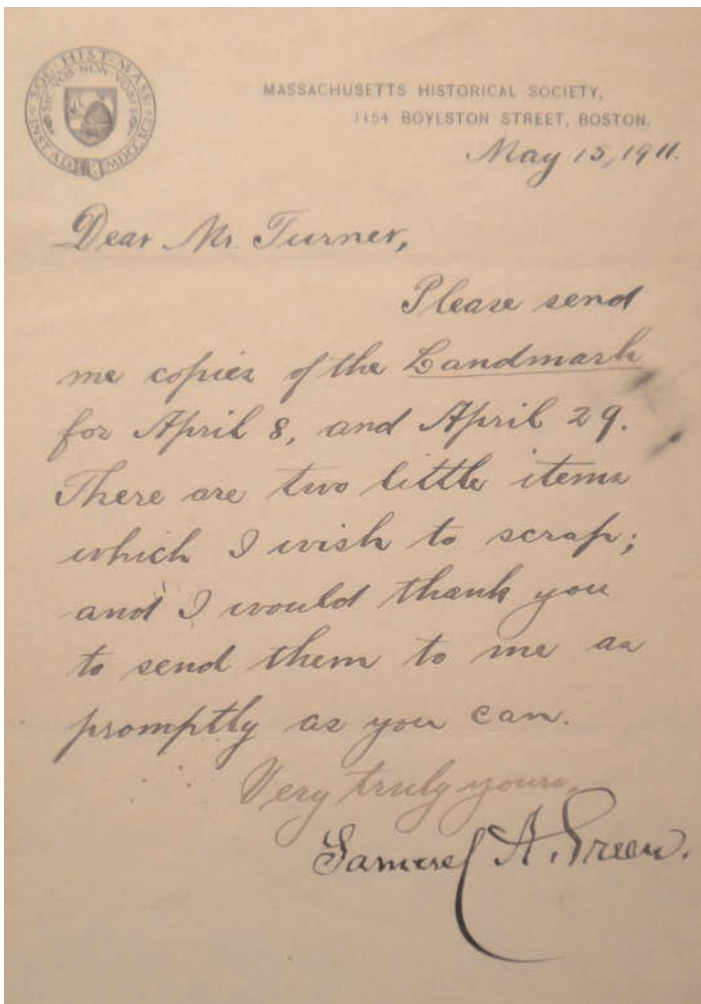 SOC · HIST · MASS ·
SIC VOS NON VOBIS
INST AD MDCCXCI
MASSACHUSETTS HISTORICAL SOCIETY,
1154 BOYLSTON STREET, BOSTON.
May 15, 1911.
Dear Mr. Turner,
Please send
me copies of the Landmark
for April 8, and April 29.
There are two little items
which I wish to scrap;
and I would thank you
to send them to me as
promptly as you can.
Very truly yours,
Samuel A. Green.